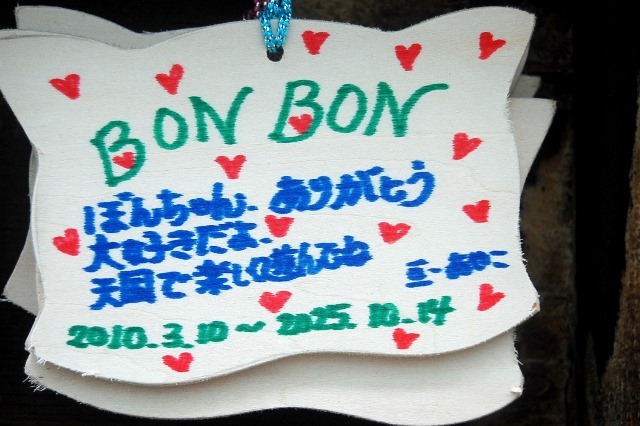 BON BON
ぼんちゃん、ありがとう
大好きだよ、
天国で楽しく遊んでね
2010.3.10～2025.10.14